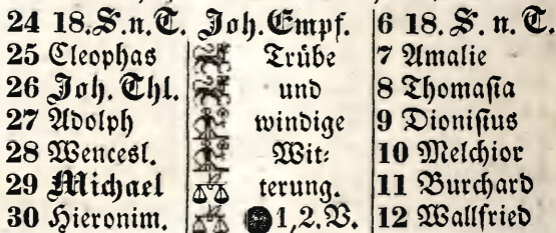 24 18. S. n. T. Joh. Empf. 6 18. S. n. T.
25 Cleophas Trübe 7 Amalie
26 Joh. Thl. und 8 Thomasia
27 Adolph windige 9 Dionisius
28 Wencesl. Wit- 10 Melchior
29 Michael terung. 11 Burchard
30 Hieronim. 1, 2. V. 12 Wallfried